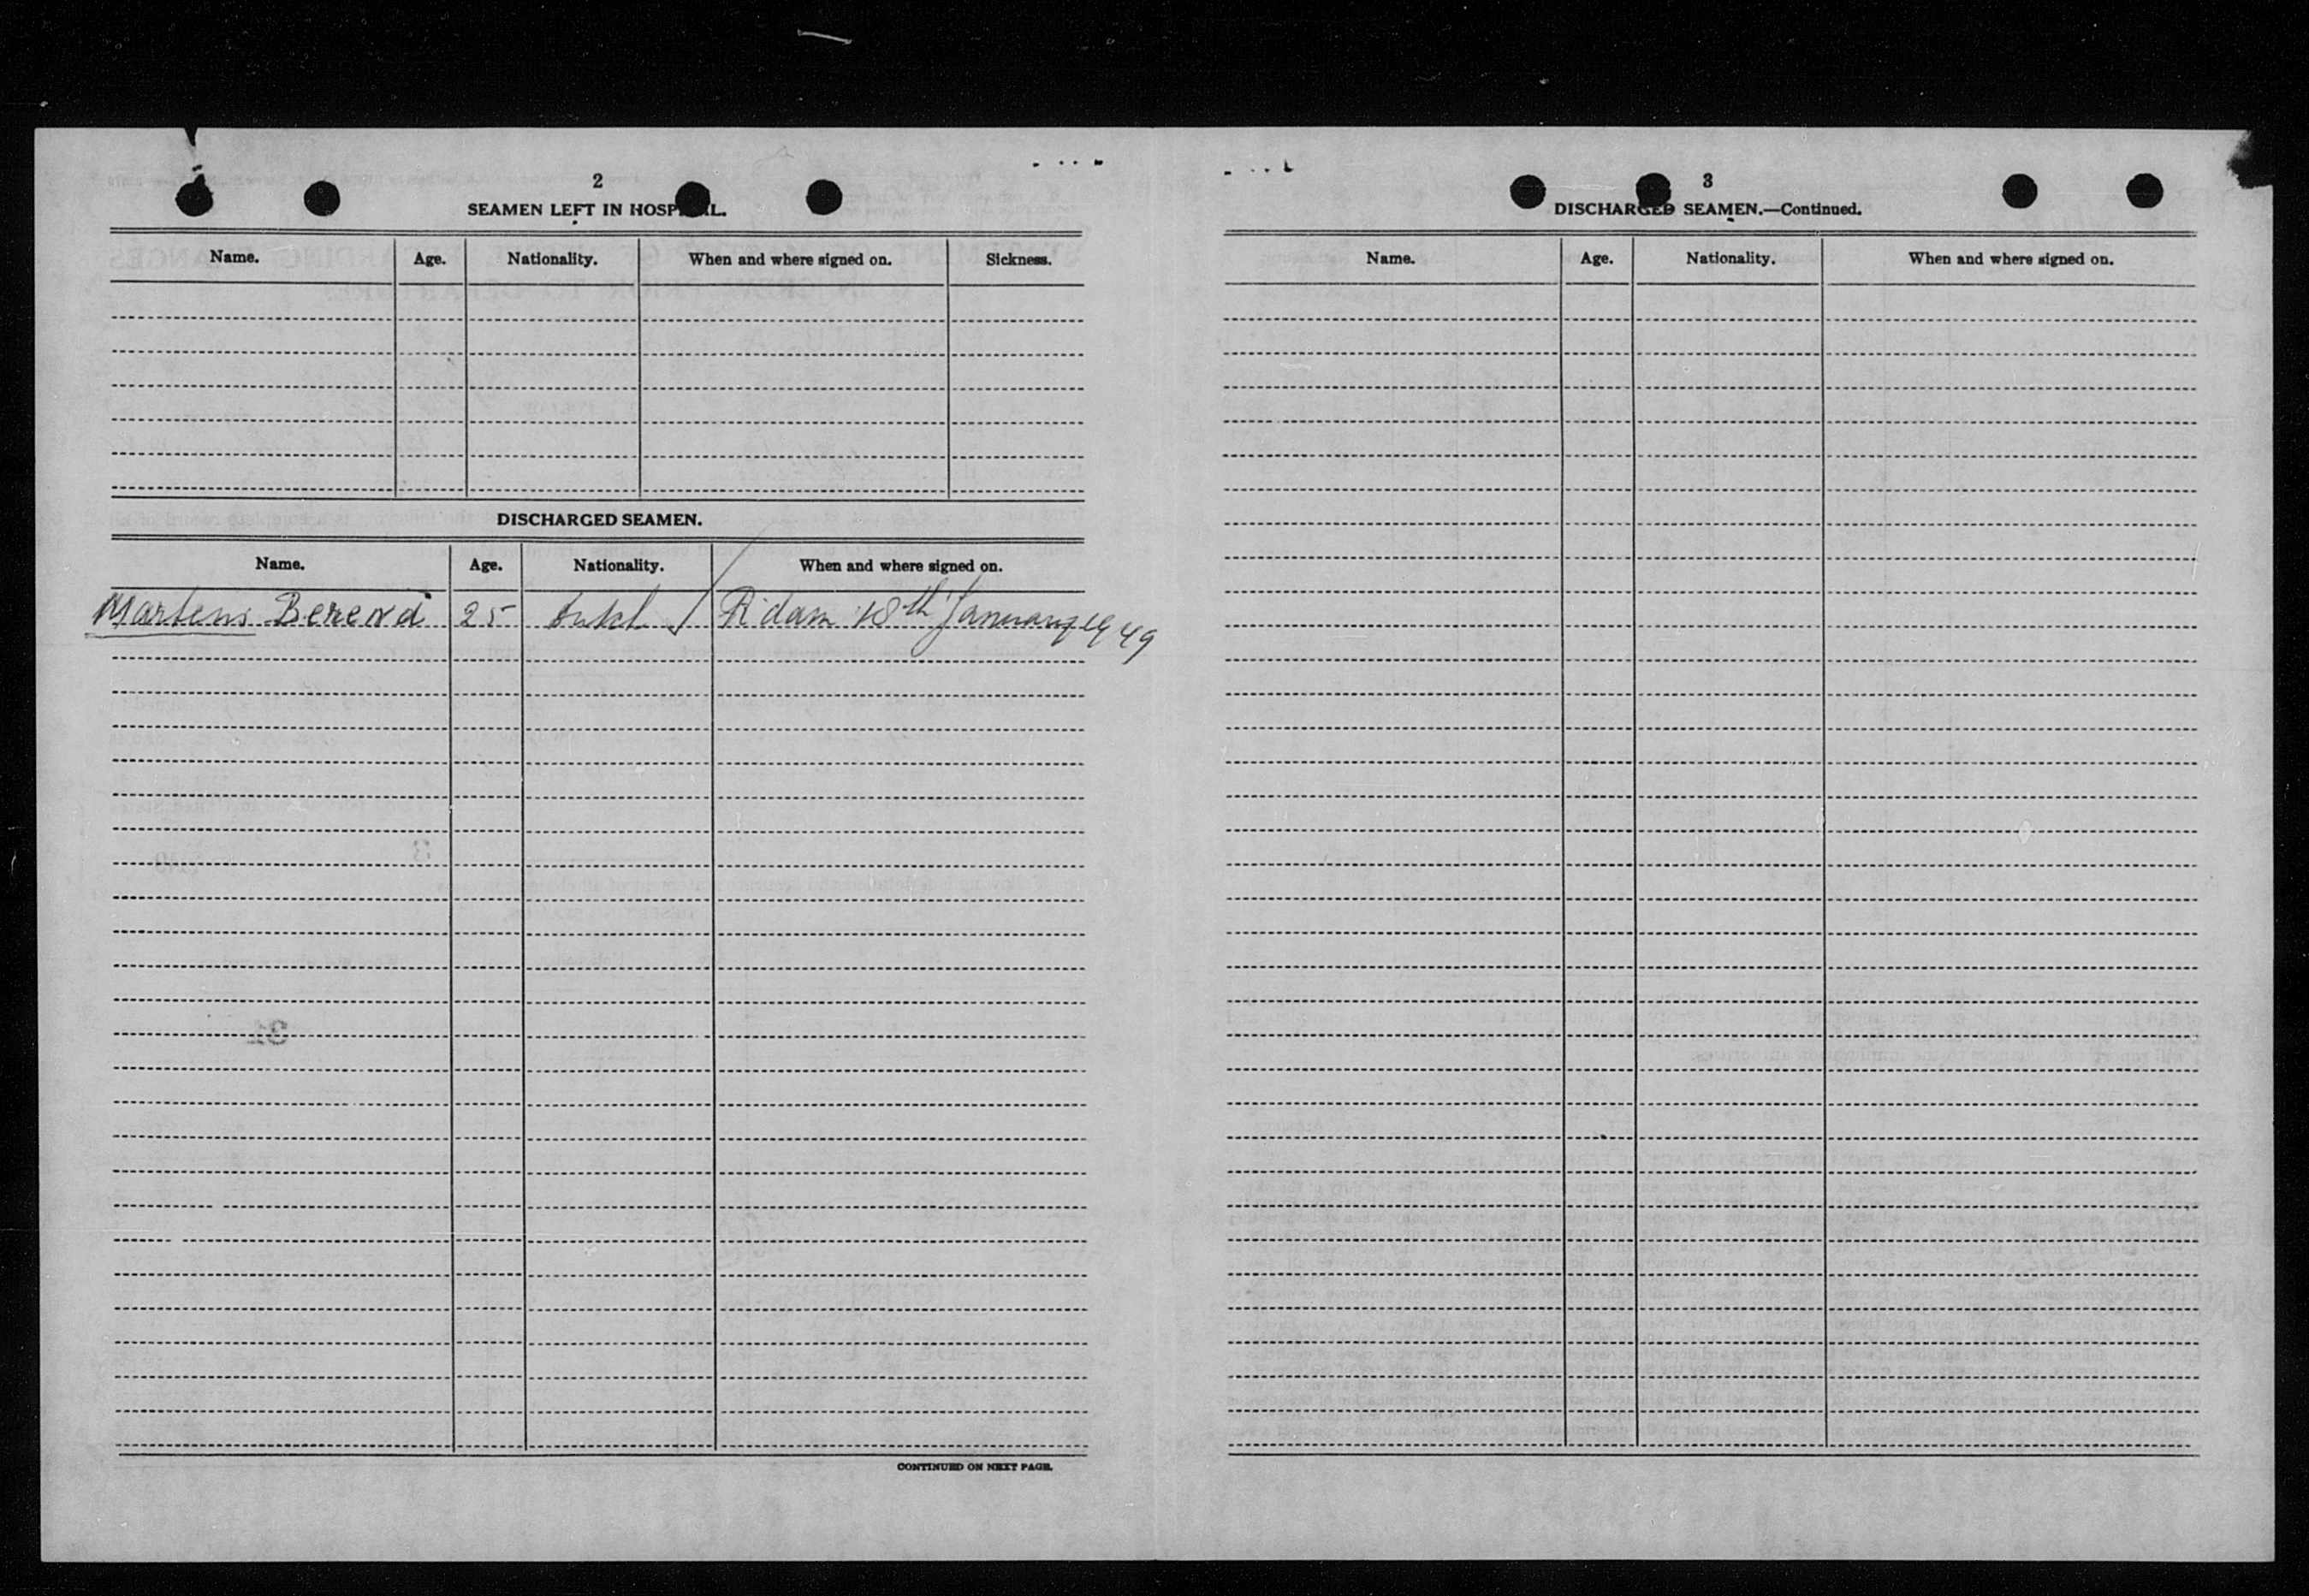 2
SEAMEN LEFT IN HOSPITAL.
Name. Age. Nationality. When and where signed on. Sickness.
DISCHARGED SEAMEN.
Name. Age. Nationality. When and where signed on.
Martens Berend 25 Dutch R'dam 18th January 1949
CONTINUED ON NEXT PAGE.
3
DISCHARGED SEAMEN.—Continued.
Name. Age. Nationality. When and where signed on.